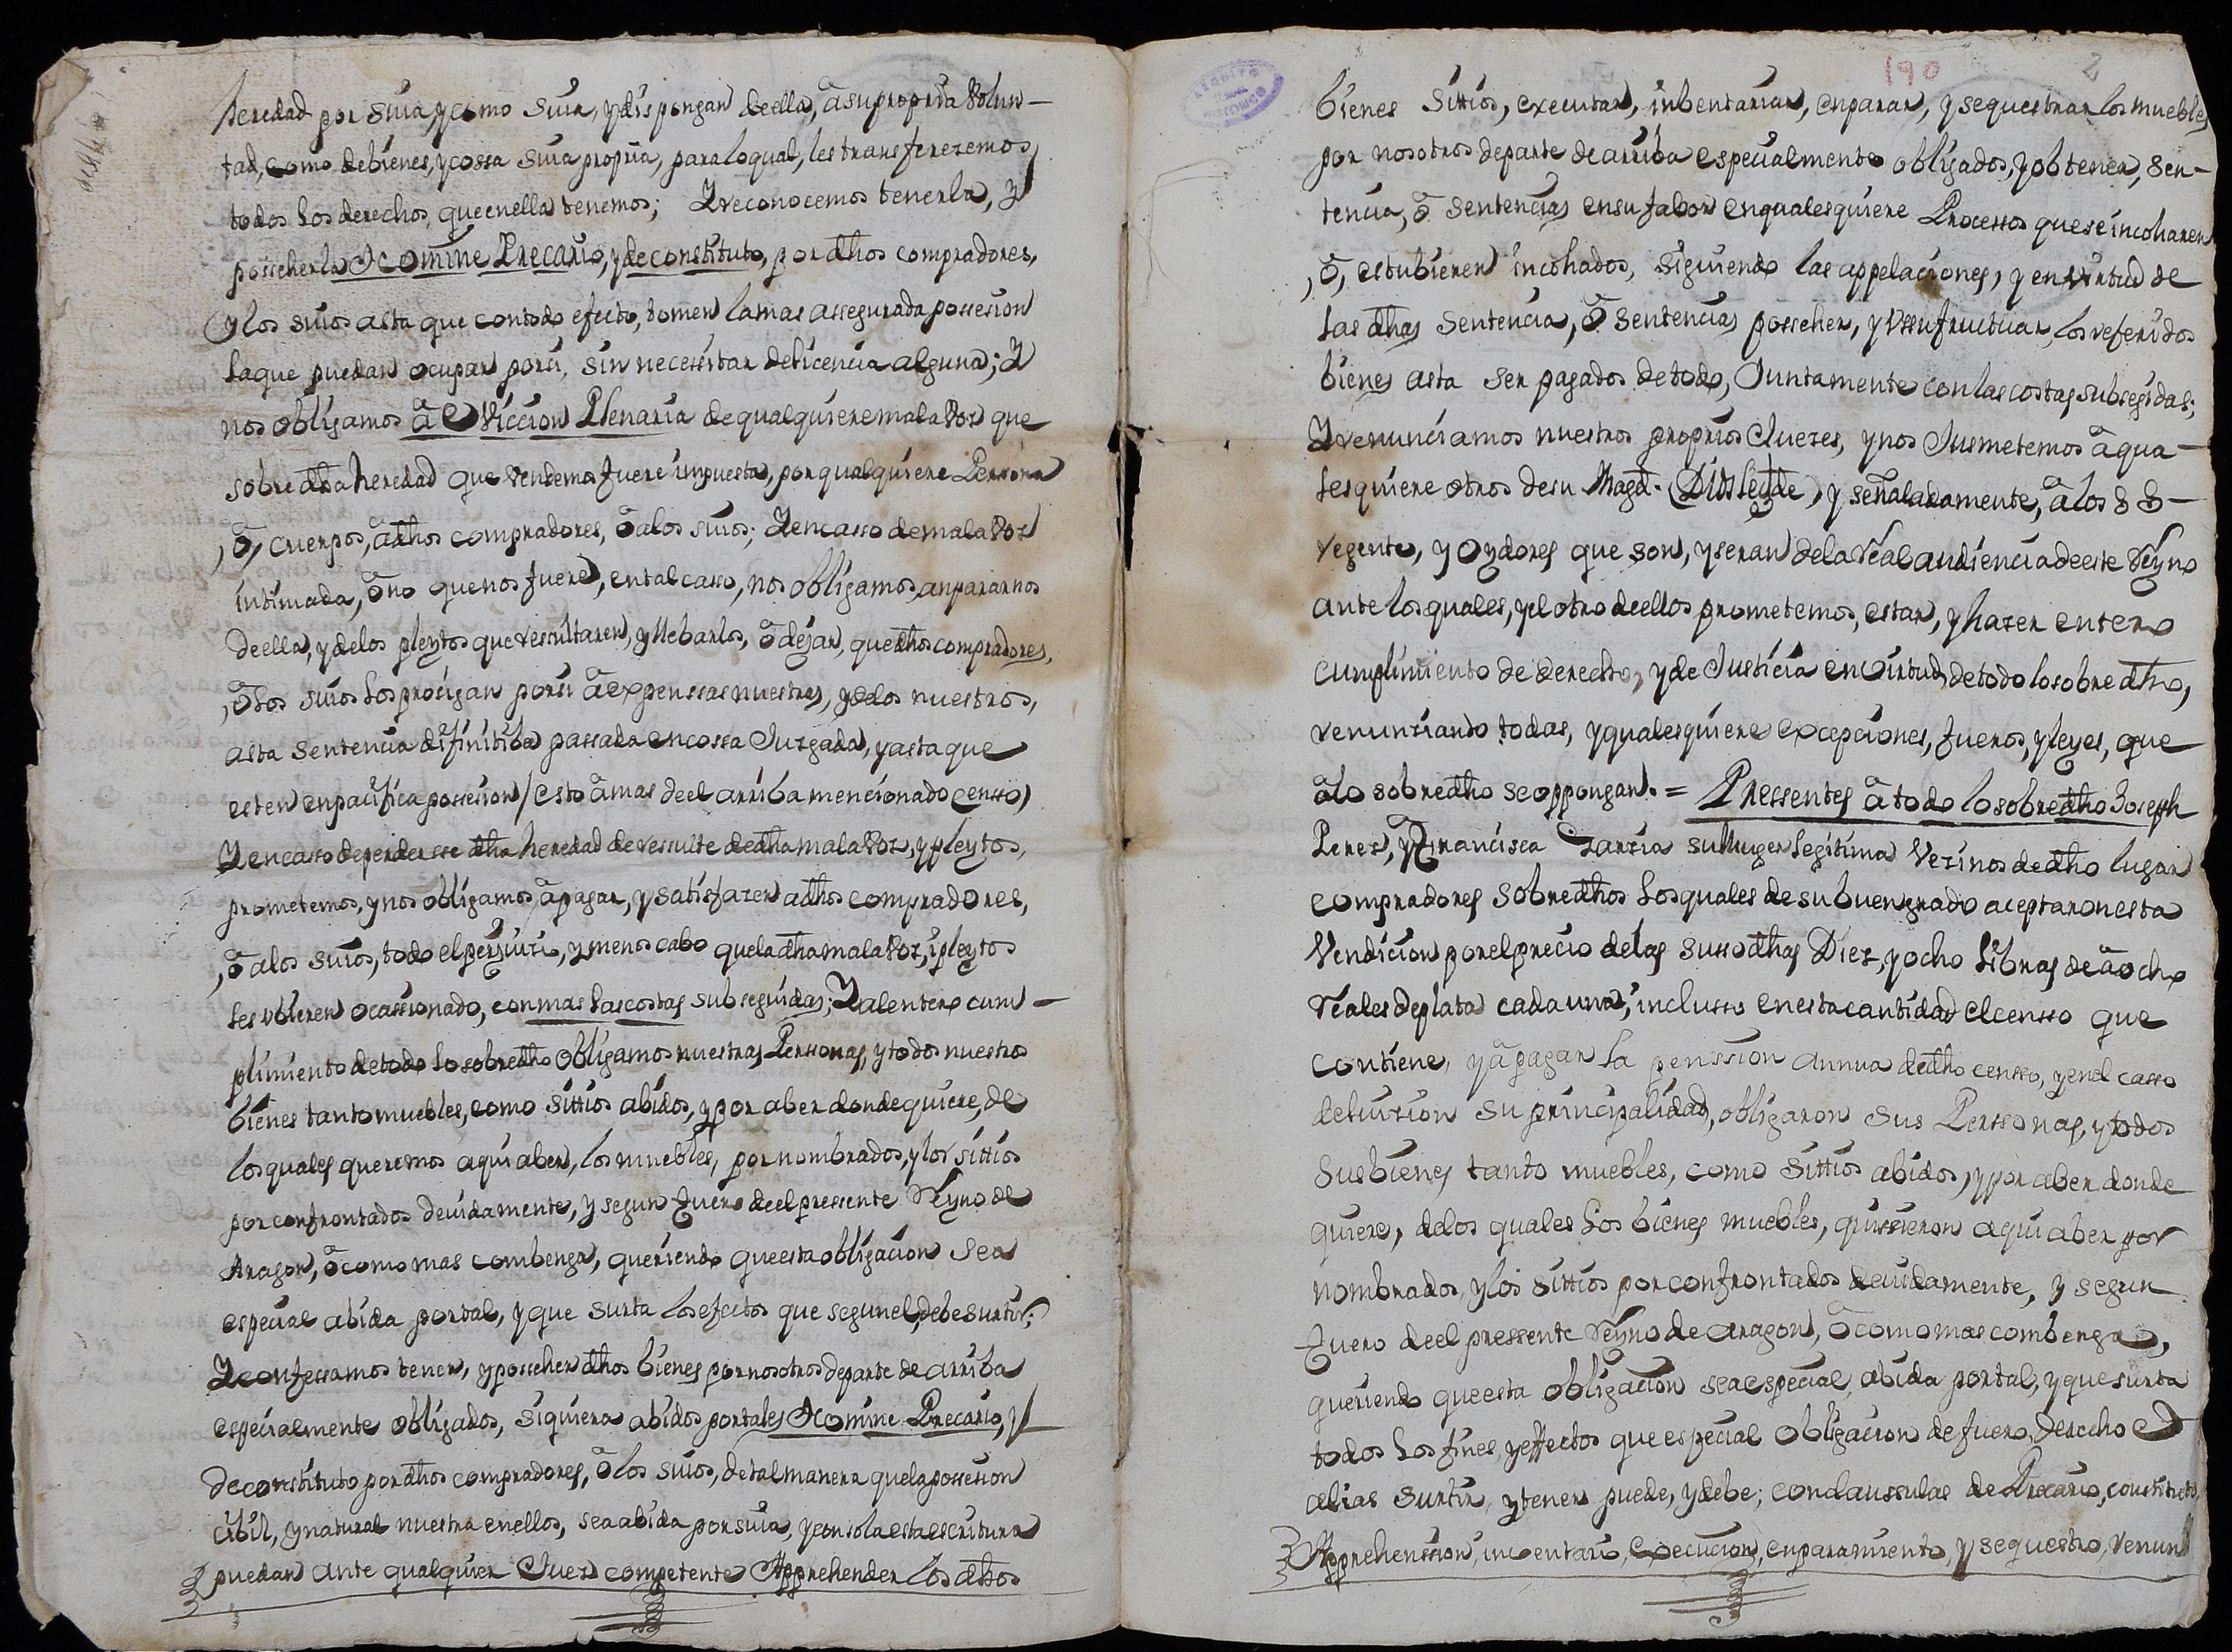 heredad por suia, y como suia, y dispongan de ella, â su propria volun-
tad, como de bienes, y cossa suia propria, para lo qual, les transferezemos
todos los derechos, que en ella tenemos; Y reconocemos tenerla, y
posseherla Nomine Precario, y de constituto, por dhos compradores,
y los suios asta que con todo efecto, tomen la mas assegurada possesion
la que puedan ocupar por si, sin necessitar de licencia alguna; Y
nos obligamos â eviccion Plenaria de qualquiere mala voz que
sobre dha heredad que vendemos fuere impuesta, por qualquiere Perssona
, ô, cuerpos, â dhos compradores, ô a los suios; Y en casso de mala voz
intimada, ô no que nos fuere, en tal casso, nos obligamos, anpararnos
de ella, y de los pleytos que resultaren, y llebarlos, ô dejar, que dhos compradores,
, ô los suios los prosigan por si â expenssas nuestras, y de los nuestros,
asta sentencia difinitiba passada en cossa Juzgada, y asta que
esten en pacifica possesion / esto â mas de el arriba mencionado censso)
Y en casso de perdersse dha heredad de ressulte de dha mala voz, y pleytos,
prometemos, y nos obligamos â pagar, y satisfazer a dhos compradores,
, ô a los suios, todo el perjuizio, y menos cabo que la dha mala voz, i pleytos
les vbieren ocassionado, con mas las costas subseguidas; Y al entero cum-
plimiento de todo lo sobre dho obligamos nuestras Perssonas, y todos nuestros
bienes tanto muebles, como sittios abidos, y por aber donde quiere, de
los quales queremos aqui aber, los muebles, por nombrados, y los sittios
por confrontados deuidamente, y segun fuero de el pressente Reyno de
Aragon, ô como mas combenga, queriendo que esta obligacion sea
especial abida por tal, y que surta los efectos que segun el, debe surtir;
Y confessamos tener, y posseher dhos bienes por nosotros de parte de arriba
especialmente obligados, siquiera abidos por tales Nomine Precario, y
de constituto por dhos compradores, ô los suios, de tal manera que la possesion
cibil, y natural nuestra en ellos, sea abida por suia, y con sola esta escritura
puedan ante qualquier Juez competente Apprehender los dhos
190
2
bienes sittios, executar, inbentariar, enparar, y sequestrar los muebles
por nosotros de parte de arriba especialmente obligados, y obtener, sen-
tencia, ô sentencias en su fabor en qualesquiere Processos que se incoharen
, ô, estubieren incohados, siguiendo las appelaciones, y en virtud de
las dhas sentencia, ô sentencias posseher, y vssufructuar, los referidos
bienes asta ser pagados de todo, Juntamente con las costas subsegidas;
Y renunciamos nuestros proprios Juezes, y nos Jusmetemos â qua-
lesquiere otros de su Magd. (Dios le gde) y señaladamente, â los SS
regente, y Oydores que son, y seran de la Real audiencia de este Reyno
ante los quales, y el otro de ellos prometemos, estar, y hazer entero
cumplimiento de derecho, y de Justicia en virtud de todo lo sobre dho,
renunziando todas, y qualesquiere excepciones, fueros, y leyes, que
â lo sobre dho se oppongan. = Pressentes â todo lo sobre dho Joseph
Perez, y Francisca Garzia su Muger Legitima Vezinos de dho lugar
compradores sobre dhos los quales de su buen grado aceptaron esta
Vendicion por el precio de las susso dhas Diez, y ocho Libras de â ocho
reales de plata cada una, inclusso en esta cantidad el censso que
contiene, y â pagar la penssion annua de dho censso, y en el casso
de luizion su principalidad, obligaron sus Perssonas, y todos
sus bienes tanto muebles, como sittios abidos, y por aber donde
quiere, de los quales los bienes muebles, quissieron aqui aber por
nombrados, y los sittios por confrontados deuidamente, y segun
fuero de el pressente Reyno de Aragon, ô como mas combenga,
queriendo que esta obligacion sea especial, abida por tal, y que surta
todos los fines, y effectos que especial obligacion de fuero, derecho et
alias surtir, y tener puede, y debe; con claussulas de Precario, constituto,
Apprehenssion, inventario, execucion, enparamiento, y sequestro, renun